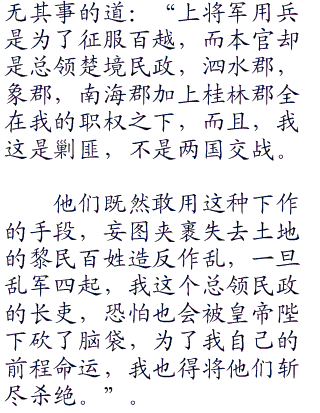 无其事的道：“上将军用兵
是为了征服百越，而本官却
是总领楚境民政，泗水郡，
象郡，南海郡加上桂林郡全
在我的职权之下，而且，我
这是剿匪，不是两国交战。
他们既然敢用这种下作
的手段，妄图夹裹失去土地
的黎民百姓造反作乱，一旦
乱军四起，我这个总领民政
的长吏，恐怕也会被皇帝陛
下砍了脑袋，为了我自己的
前程命运，我也得将他们斩
尽杀绝。”。